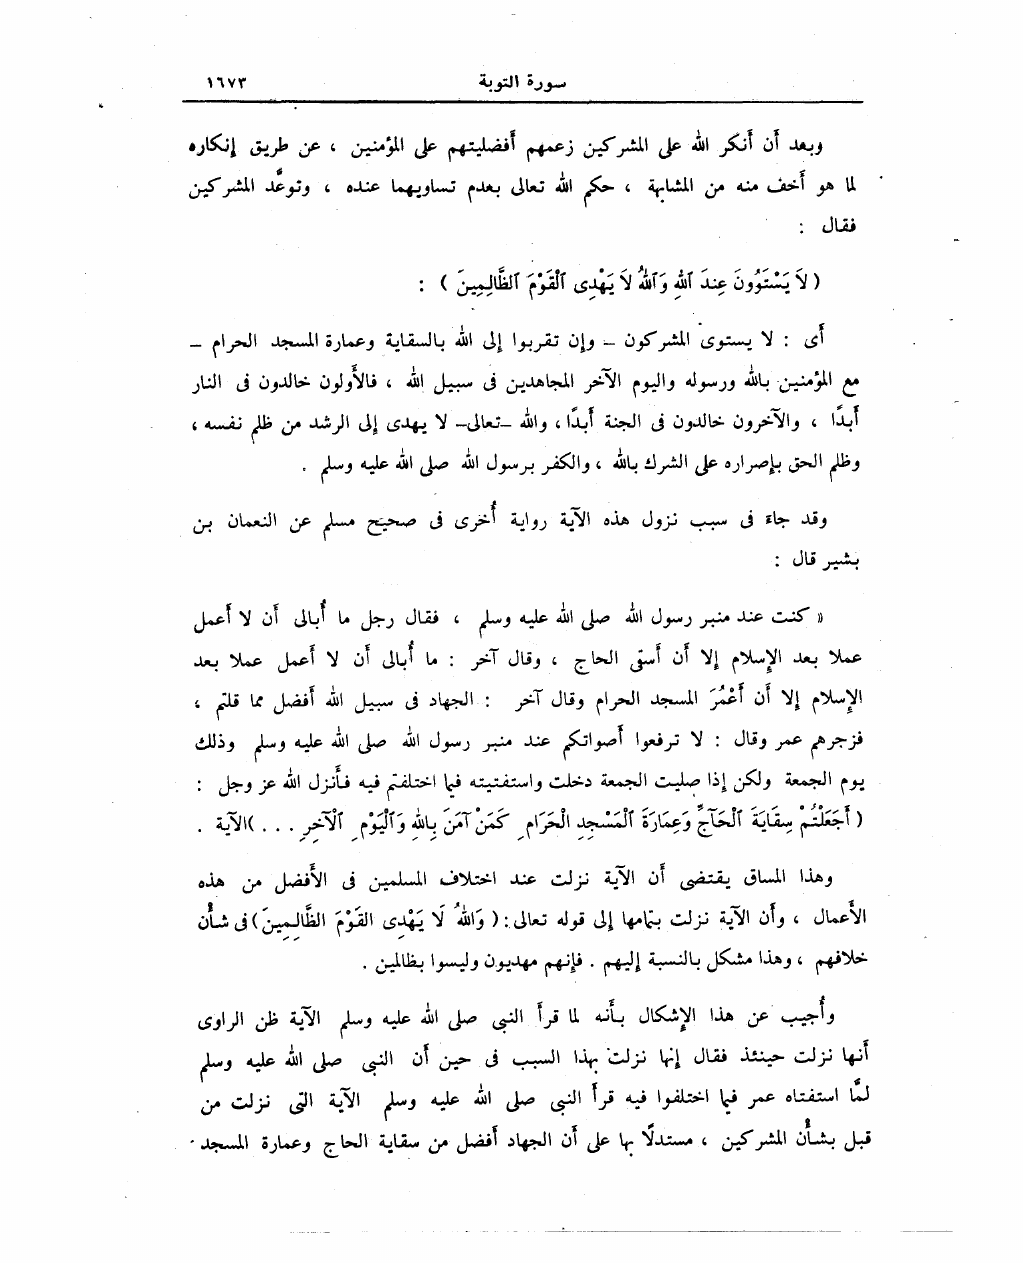 سورة التوبة ١٦٧٣
وبعد أن أنكر الله على المشركين زعمهم أفضليتهم على المؤمنين ، عن طريق إنكاره
لما هو أخف منه من المشابهة ، حكم الله تعالى بعدم تساويهما عنده ، وتوعَّد المشركين
فقال :
( لاَ يَسْتَوُونَ عِندَ ٱللهِ وَٱللهُ لاَ يَهْدِى ٱلْقَوْمَ ٱلظَّالِمِينَ ) :
أى : لا يستوى المشركون – وإن تقربوا إلى الله بالسقاية وعمارة المسجد الحرام –
مع المؤمنين بالله ورسوله واليوم الآخر المجاهدين فى سبيل الله ، فالأولون خالدون فى النار
أبدًا ، والآخرون خالدون فى الجنة أبدًا ، والله –تعالى– لا يهدى إلى الرشد من ظلم نفسه ،
وظلم الحق بإصراره على الشرك بالله ، والكفر برسول الله صلى الله عليه وسلم .
وقد جاء فى سبب نزول هذه الآية رواية أُخرى فى صحيح مسلم عن النعمان بن
بشير قال :
« كنت عند منبر رسول الله صلى الله عليه وسلم ، فقال رجل ما أُبالى أن لا أعمل
عملا بعد الإسلام إلا أن أسقى الحاج ، وقال آخر : ما أُبالى أن لا أعمل عملا بعد
الإسلام إلا أن أَعْمُرَ المسجد الحرام وقال آخر : الجهاد فى سبيل الله أفضل مما قلتم ،
فزجرهم عمر وقال : لا ترفعوا أصواتكم عند منبر رسول الله صلى الله عليه وسلم وذلك
يوم الجمعة ولكن إذا صليت الجمعة دخلت واستفتيته فيما اختلفتم فيه فأنزل الله عز وجل :
( أَجَعَلْتُمْ سِقَايَةَ ٱلْحَآجِّ وَعِمَارَةَ ٱلْمَسْجِدِ الْحَرَامِ كَمَنْ آمَنَ بِاللهِ وَٱلْيَوْمِ ٱلْآخِرِ . . . )الآية .
وهذا المساق يقتضى أن الآية نزلت عند اختلاف المسلمين فى الأفضل من هذه
الأعمال ، وأن الآية نزلت بتمامها إلى قوله تعالى : ( وَاللهُ لَا يَهْدِى القَوْمَ الظَّالِمِينَ ) فى شأن
خلافهم ، وهذا مشكل بالنسبة إليهم . فإنهم مهديون وليسوا بظالمين .
وأُجيب عن هذا الإشكال بأنه لما قرأ النبى صلى الله عليه وسلم الآية ظن الراوى
أنها نزلت حينئذ فقال إنها نزلت بهذا السبب فى حين أن النبى صلى الله عليه وسلم
لمَّا استفتاه عمر فيما اختلفوا فيه قرأ النبى صلى الله عليه وسلم الآية التى نزلت من
قبل بشأن المشركين ، مستدلًا بها على أن الجهاد أفضل من سقاية الحاج وعمارة المسجد